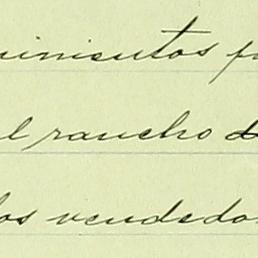 uinientos p
el rancho d
los vendedo